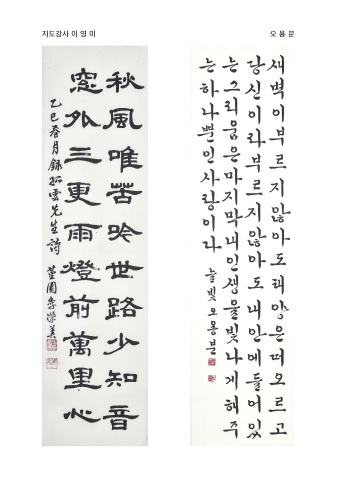 지도강사 이 영 미
秋風唯苦吟世路少知音
窓外三更雨燈前萬里心
乙巳春月錄孤雲先生詩 園李榮美
오 용 분
새벽이부르지않아도태양은떠오르고
당신이라부르지않아도내안에들어있
는그리움은마지막내인생을빛나게해주
는하나뿐인사랑이라
늘빛 오용분